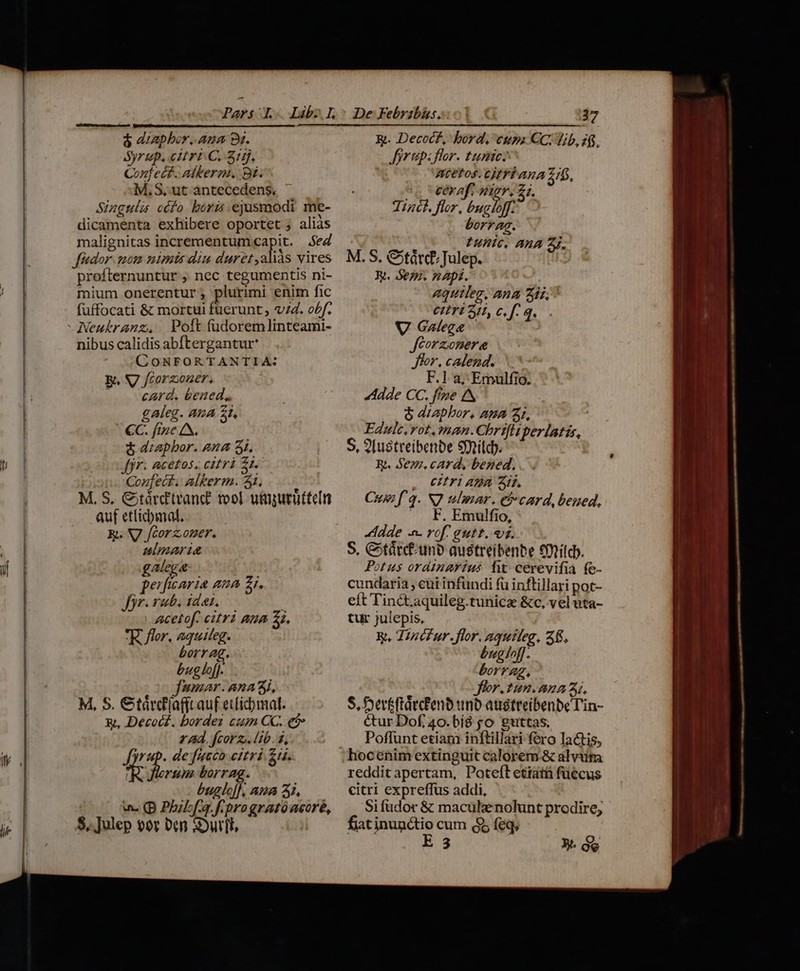 Pars I. Lib. I. De Febribus. 37
☿ diaphor. ana ℈i.
Syrup. citri C. ʒiij.
Confect. alkerm. ℈i.
M. S. ut antecedens.
Singulis octo horis ejusmodi me-
dicamenta exhibere oportet; aliàs
malignitas incrementum capit. Sed
sudor non nimis diu duret, aliàs vires
prosternuntur, nec tegumentis ni-
mium onerentur; plurimi enim sic
suffocati & mortui fuerunt, vid. obs.
Neukranz. Post sudorem linteami-
nibus calidis abstergantur
CONFORTANTIA:
℞. ▽ scorzoner.
card. bened.
galeg. ana ℥i.
CC. sine △.
☿ diaphor. ana ʒi.
syr. acetos. citri ℥i.
Confect. alkerm. ʒi.
M. S. Stärcktranck wol umzurütteln
auf etlichmal.
℞. ▽ scorzoner.
ulmariæ
galegæ
persicariæ ana ℥i.
syr. rub. idæi.
acetos. citri ana ℥i.
flor. aquileg.
borrag.
bugloss.
fumar. ana ʒi.
M. S. Stärcksafft auf etlichmal.
℞. Decoct. hordei cum CC. &
rad. scorz. lib. i.
syrup. de succo citri ℥ii.
florum borrag.
bugloss. ana ℥i.
Philos. q. s. pro grato acore.
S. Julep vor den Durst.
℞. Decoct. hord. cum CC. lib. iß.
syrup. flor. tunic.
acetos. citri ana ℥iß.
ceras. nigr. ℥i.
Tinct. flor. bugloss.
borrag.
tunic. ana ʒi.
M. S. Stärck-Julep.
℞. Sem. napi.
aquileg. ana ʒii.
citri ʒii, c. s. q.
▽ Galegæ
scorzoneræ
flor. calend.
F. l. a. Emulsio.
Adde CC. sine △
☿ diaphor. ana ʒi.
Edulc. rot. man. Christi perlatis.
S. Austreibende Milch.
℞. Sem. card. bened.
citri ana ʒii.
Cum s. q. ▽ ulmar. & card. bened.
F. Emulsio,
Adde ros. gutt. vi.
S. Stärck- und austreibende Milch.
Potus ordinarius fit cerevisia se-
cundaria, cui infundi suinstillari pot-
est Tinct. aquileg. tunicæ &c. vel uta-
tur julepis.
℞. Tinctur. flor. aquileg. ℥ß.
bugloss.
borrag.
flor. tun. ana ʒi.
S. Hertzstärckend und austreibende Tin-
ctur Dos. 40. bis 50 guttas.
Possunt etiam instillari sero lactis,
hoc enim extinguit calorem & alvum
reddit apertam. Potest etiam succus
citri expressus addi.
Si sudor & maculæ nolunt prodire,
fiat inunctio cum seq.
E 3 ℞.